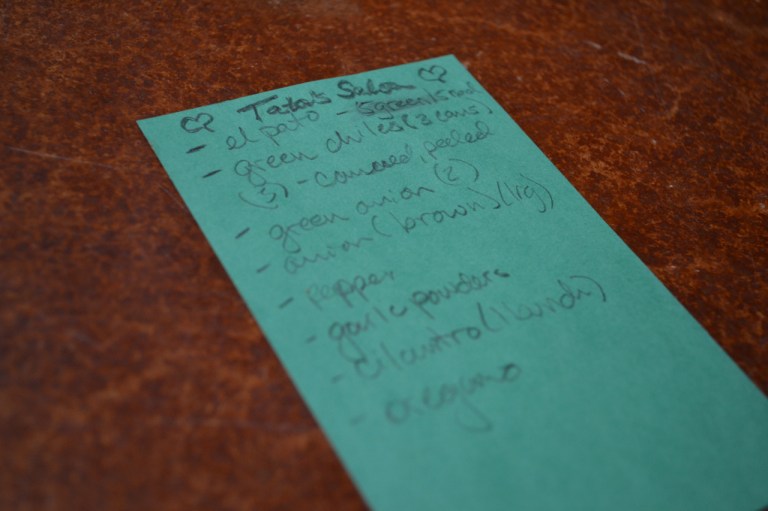 ♡ Tata's Salsa ♡
- el pato -
- green chiles (3 cans)
(3) - canned, peeled
- green onion (2)
- onion (brown) (lrg)
- pepper
- garlic powder
- cilantro (1 bunch)
- oregano